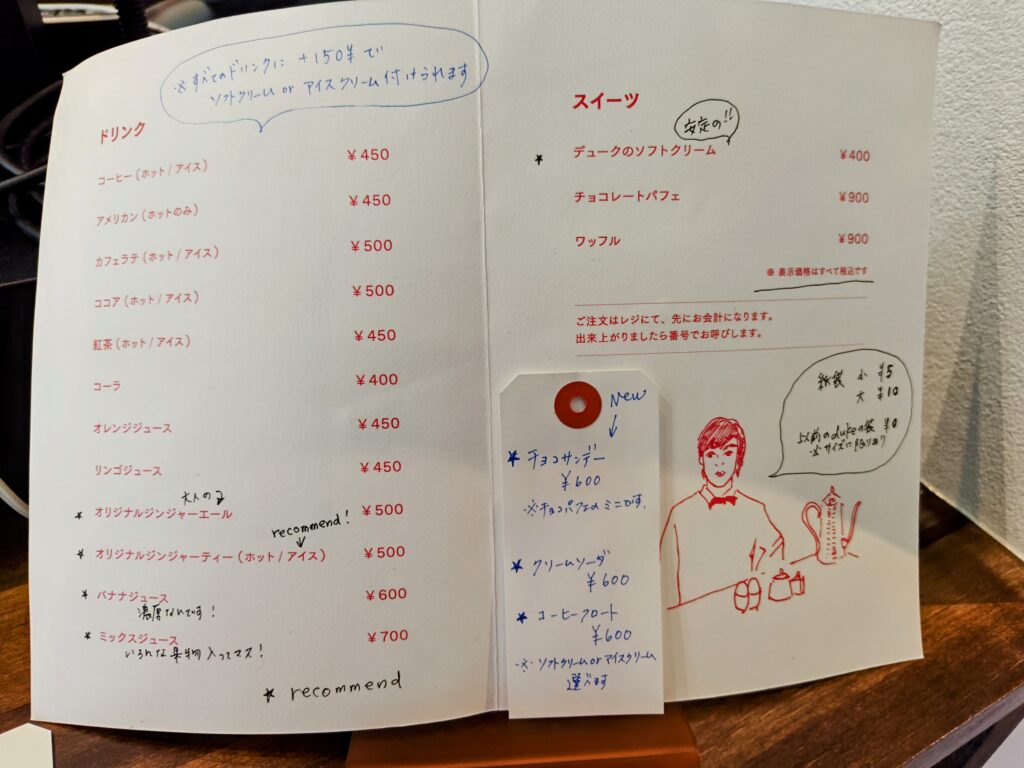 ※すべてのドリンクに +150¥で
ソフトクリーム or アイスクリーム付けられます
ドリンク
コーヒー（ホット / アイス） ￥450
アメリカン（ホットのみ） ￥450
カフェラテ（ホット / アイス） ￥500
ココア（ホット / アイス） ￥500
紅茶（ホット / アイス） ￥450
コーラ ￥400
オレンジジュース ￥450
リンゴジュース ￥450
大人の
★ オリジナルジンジャーエール ￥500
recommend!
★ オリジナルジンジャーティー（ホット / アイス） ￥500
★ バナナジュース ￥600
濃厚なんです!
★ ミックスジュース ￥700
いろんな果物入ってマス!
★ recommend
スイーツ
安定の!!
★ デュークのソフトクリーム ￥400
チョコレートパフェ ￥900
ワッフル ￥900
※ 表示価格はすべて税込です
ご注文はレジにて、先にお会計になります。
出来上がりましたら番号でお呼びします。
New
★ チョコサンデー
￥600
※チョコパフェのミニです.
★ クリームソーダ
￥600
★ コーヒーフロート
￥600
※ ソフトクリーム or アイスクリーム
選べます
紙袋 小 ¥5
大 ¥10
以前のdukeの袋 ¥0
※サイズに限りあり